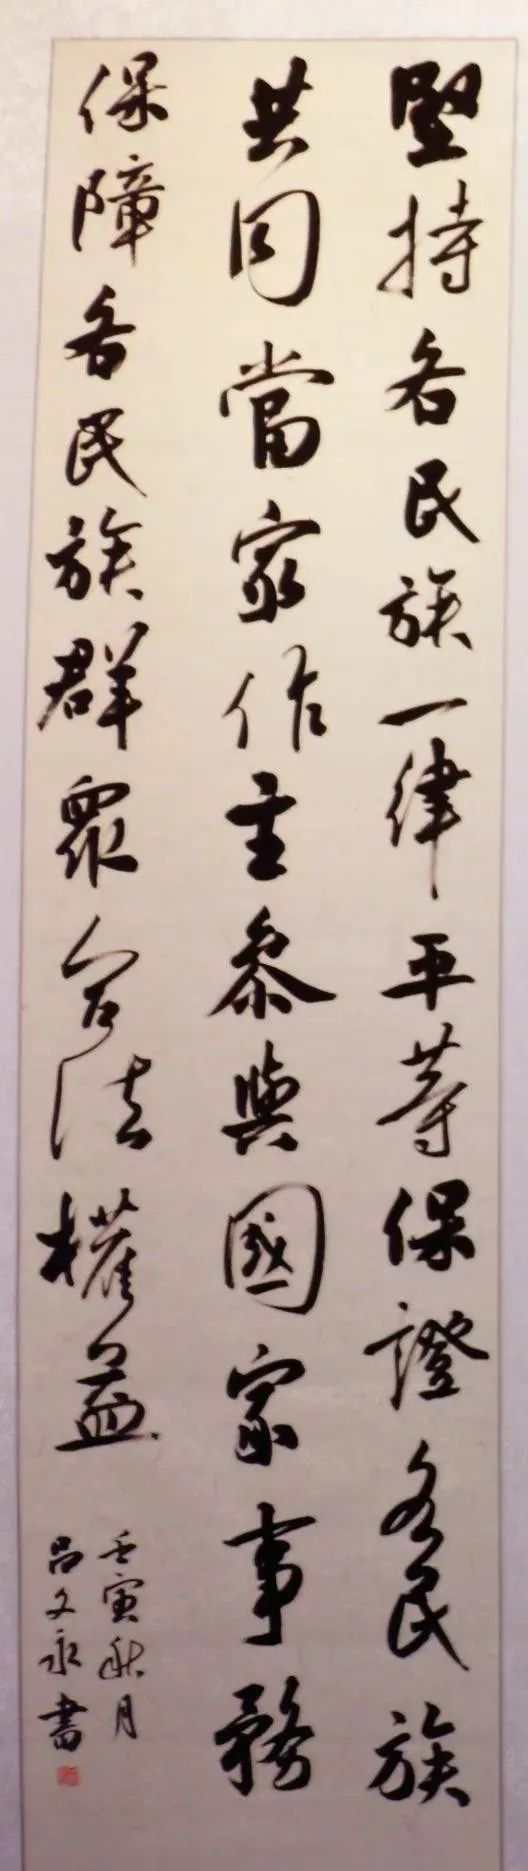 堅持各民族一律平等保證各民族
共同當家作主參與國家事務
保障各民族群眾合法權益
壬寅秋月
呂文永書